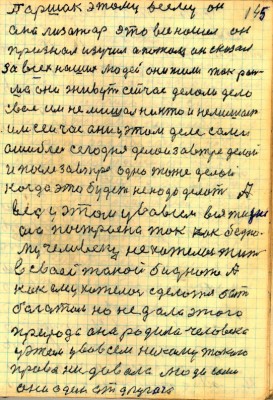 145
Паршак этому всему он
анализатар это все понял он
признал изучил а потом он сказал
за всех наших людей они жили так ра
ла они живут сейчас делали дело
свае им не мишал никто и не мишает
им сейчас а ни у этом деле сами
ашиблис сегодня делой завтре делой
и после завтре одно тоже делой
когда это будет не нодо делать А
вед у этом у во всем вся жизня
его построена так как бедно
му человеку не хателос жит
в своей такой бидноте А
как ему хателос сделатся быть
багатым но не дала этого
природа она родила человека
у этем у во всем никому такого
права ни давала люди сами
они один от другога